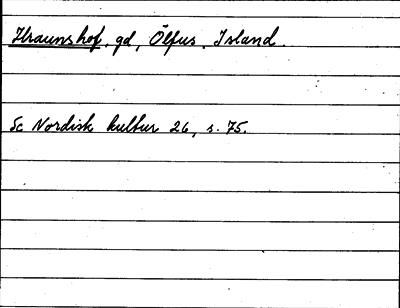 Hraunshof, gd, Ölfus, Island.
Sc Nordisk kultur 26, s. 75.